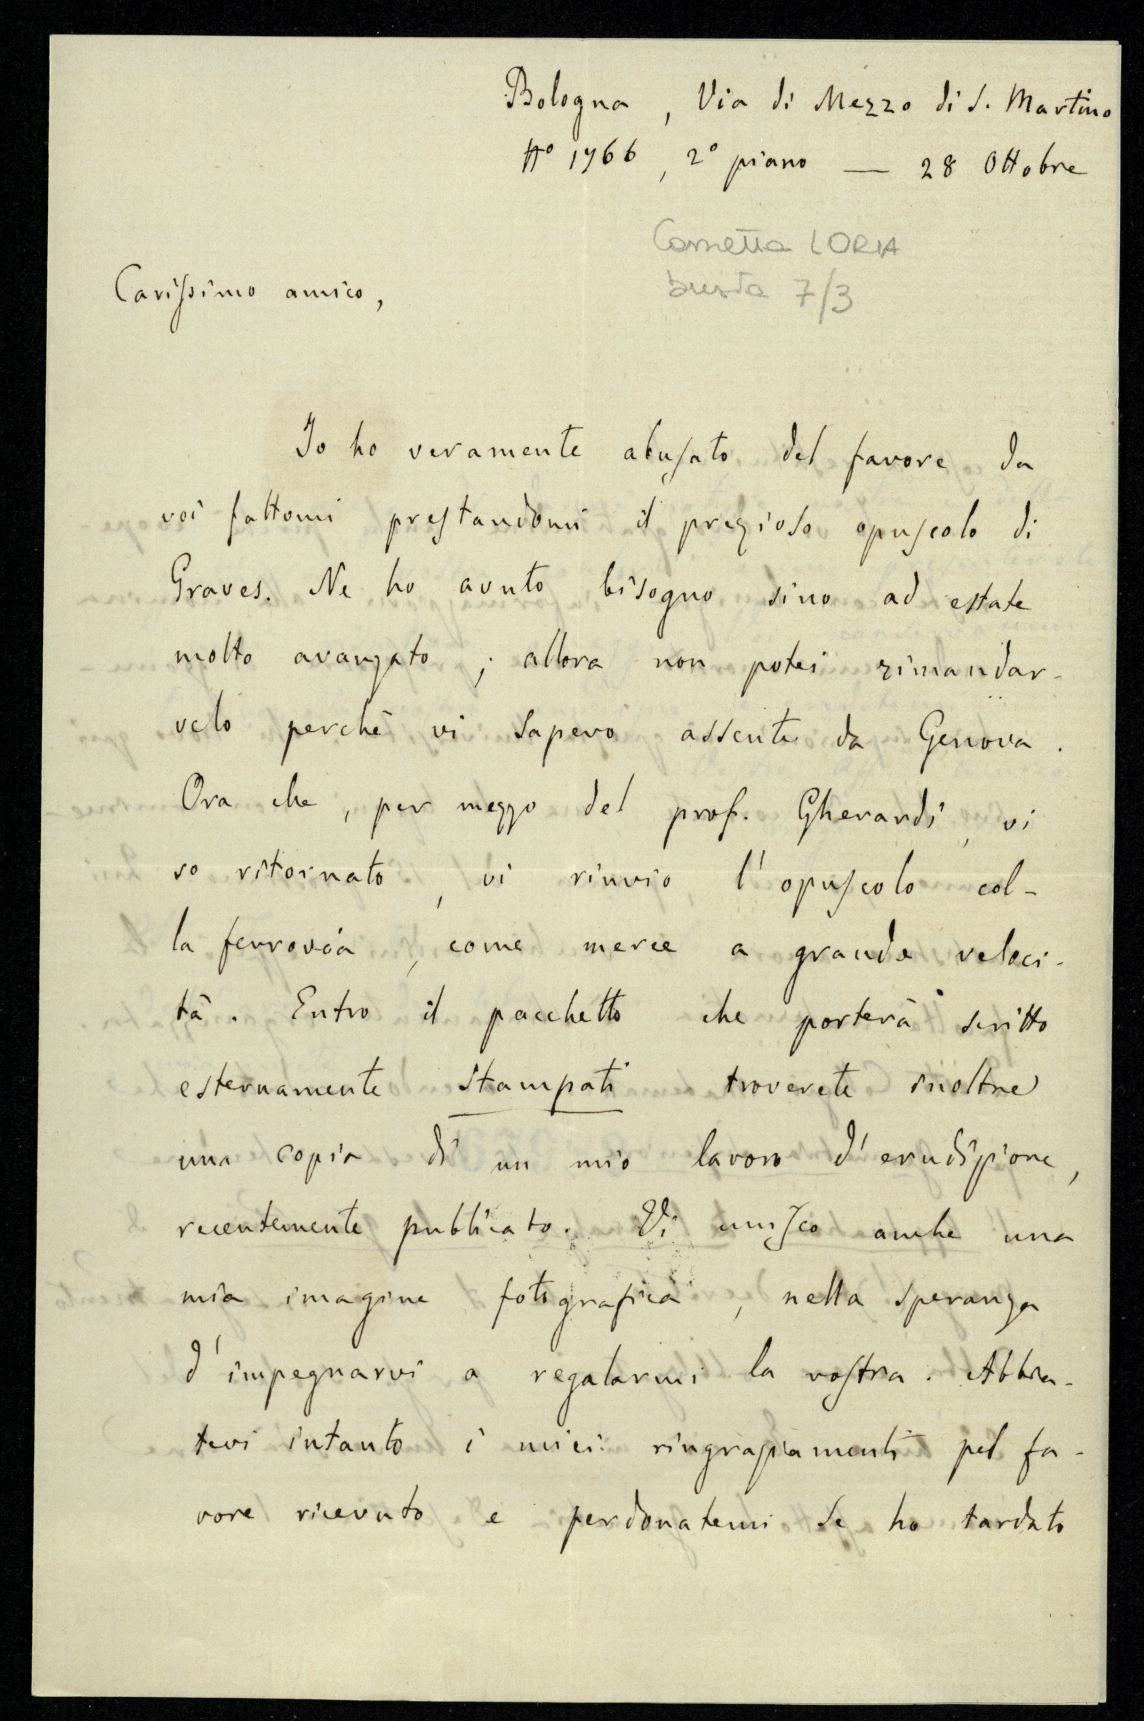 Bologna, Via di Mezzo di S. Martino
N° 1766, 2° piano — 28 Ottobre
Cassetta LORIA
busta 7/3
Carissimo amico,
Io ho veramente abusato del favore da
voi fattomi prestandomi il prezioso opuscolo di
Graves. Ne ho avuto bisogno sino ad estate
molto avanzato; allora non potei rimandar-
velo perchè vi sapevo assente da Genova.
Ora che, per mezzo del prof. Gherardi, vi
so ritornato, vi rinvio l'opuscolo col-
la ferrovia, come merce a grande veloci-
tà. Entro il pacchetto che porterà scritto
esternamente stampati troverete inoltre
una copia di un mio lavoro d'erudizione,
recentemente pubblicato. Vi unisco anche una
mia imagine fotografica, nella speranza
d'impegnarvi a regalarmi la vostra. Abbia-
tevi intanto i miei ringraziamenti pel fa-
vore ricevuto e perdonatemi se ho tardato